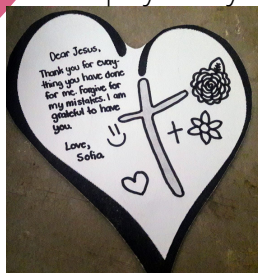 Dear Jesus,
Thank you for every-
thing you have done
for me. Forgive for
my mistakes. I am
grateful to have
you.
Love,
Sofia